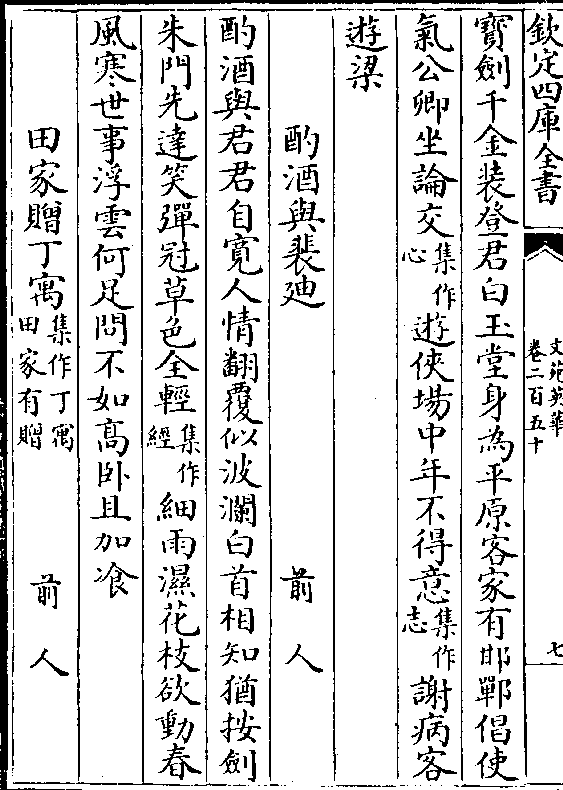 欽定四庫全書
文苑英華
卷二百五十
七
寳劍千金装登君白玉堂身為平原客家有邯鄲倡使
氣公卿坐論交集作心遊俠場中年不得意集作志謝病客
遊梁
酌酒與裴廸
前人
酌酒與君君自寛人情翻覆似波瀾白首相知猶按劍
朱門先達笑彈冠草色全輕集作經細雨濕花枝欲動春
風寒世事浮雲何足問不如髙卧且加飡
田家贈丁㝢集作丁㝢田家有贈
前人